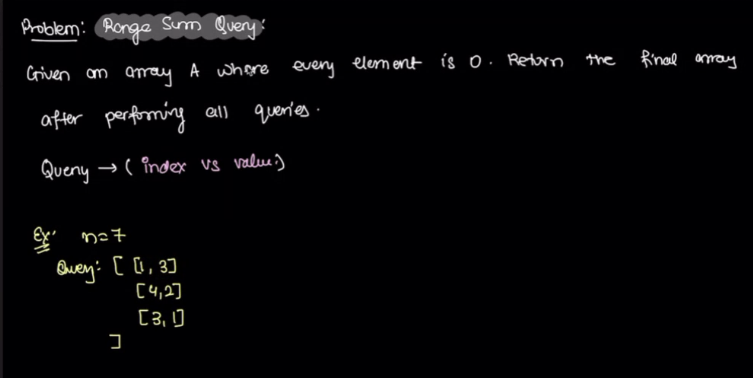 Problem: Range Sum Query:
Given an array A where every element is 0. Return the final array
after performing all queries.
Query → ( index vs value)
Ex: n=7
Query: [ [1, 3]
[4,2]
[3, 1]
]